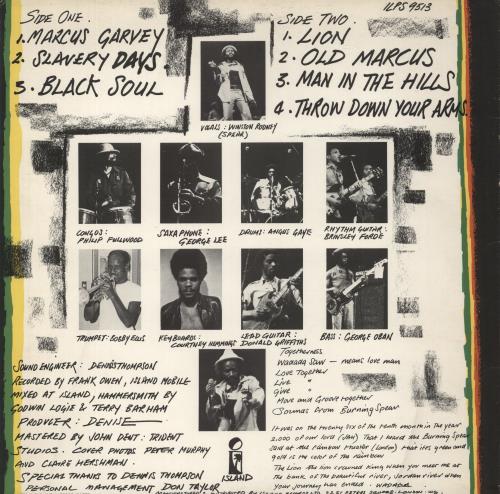 SIDE ONE.
1. MARCUS GARVEY
2. SLAVERY DAYS.
3. BLACK SOUL
SIDE TWO.
1. LION
2. OLD MARCUS
3. MAN IN THE HILLS
4. THROW DOWN YOUR ARMS.
ILPS 9513
VOCALS: WINSTON RODNEY
(SPEAR)
CONGOS:
PHILIP FULLWOOD
SAXAPHONE:
GEORGE LEE
DRUMS: ANGUS GAYE
RHYTHM GUITAR:
BRINSLEY FORDE
TRUMPET: BOBBY ELLIS
KEYBOARDS:
COURTNEY HEMMINGS
LEAD GUITAR:
DONALD GRIFFITHS
BASS: GEORGE OBAN
SOUND ENGINEER: DENNIS THOMPSON
RECORDED BY FRANK OWEN, ISLAND MOBILE
MIXED AT ISLAND, HAMMERSMITH BY
GODWIN LOGIE & TERRY BARHAM
PRODUCER: DENISE
MASTERED BY JOHN DENT: TRIDENT
STUDIOS. COVER PHOTOS PETER MURPHY
AND CLAIRE HERSHMAN.
SPECIAL THANKS TO DENNIS THOMPSON
PERSONAL MANAGEMENT DON TAYLOR
ISLAND
Togetherness
Wadada Saw — means love man
Love Together
Live "
Give "
Move and Groove together
Sounds from Burning Spear
It was on the twenty six of the tenth month in the year
2,000 of our lord (Jah) That I heard the Burning Spear
said at the rainbow theater (London) that its green and
gold is the color of the rainbow
The Lion the Lion crowned King when you meet me at
the bank of the beautiful river,
when your journey has ended.